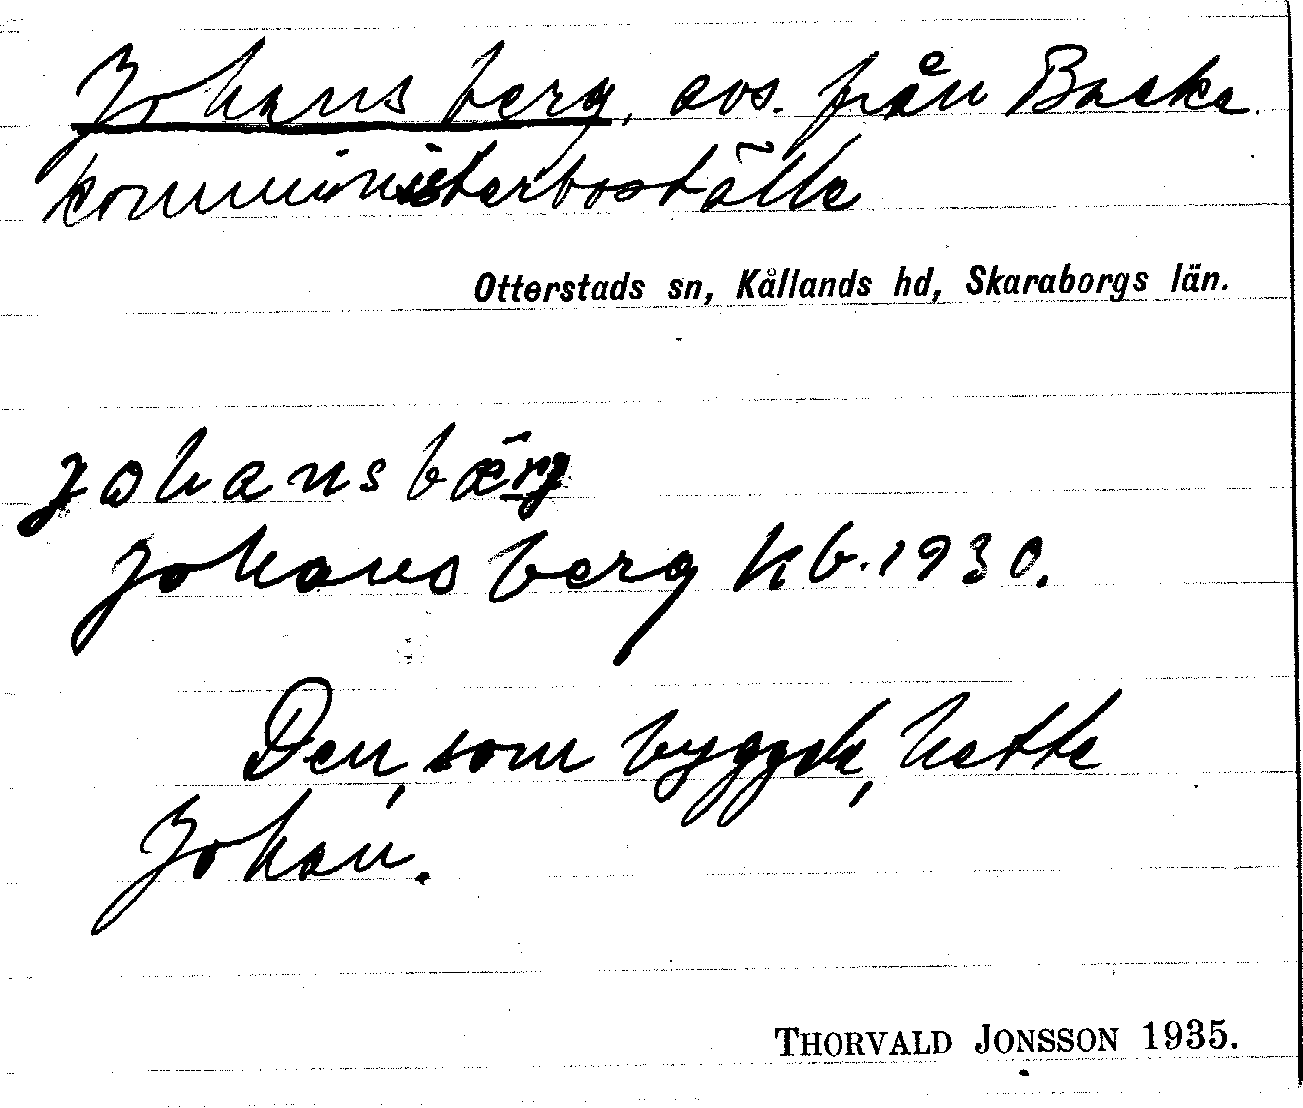 Johansberg, avs. från Backa
komministerboställe
Otterstads sn, Kållands hd, Skaraborgs län.
johansbærj
Johansberg kb. 1930.
Den, som byggde, hette
Johan.
THORVALD JONSSON 1935.